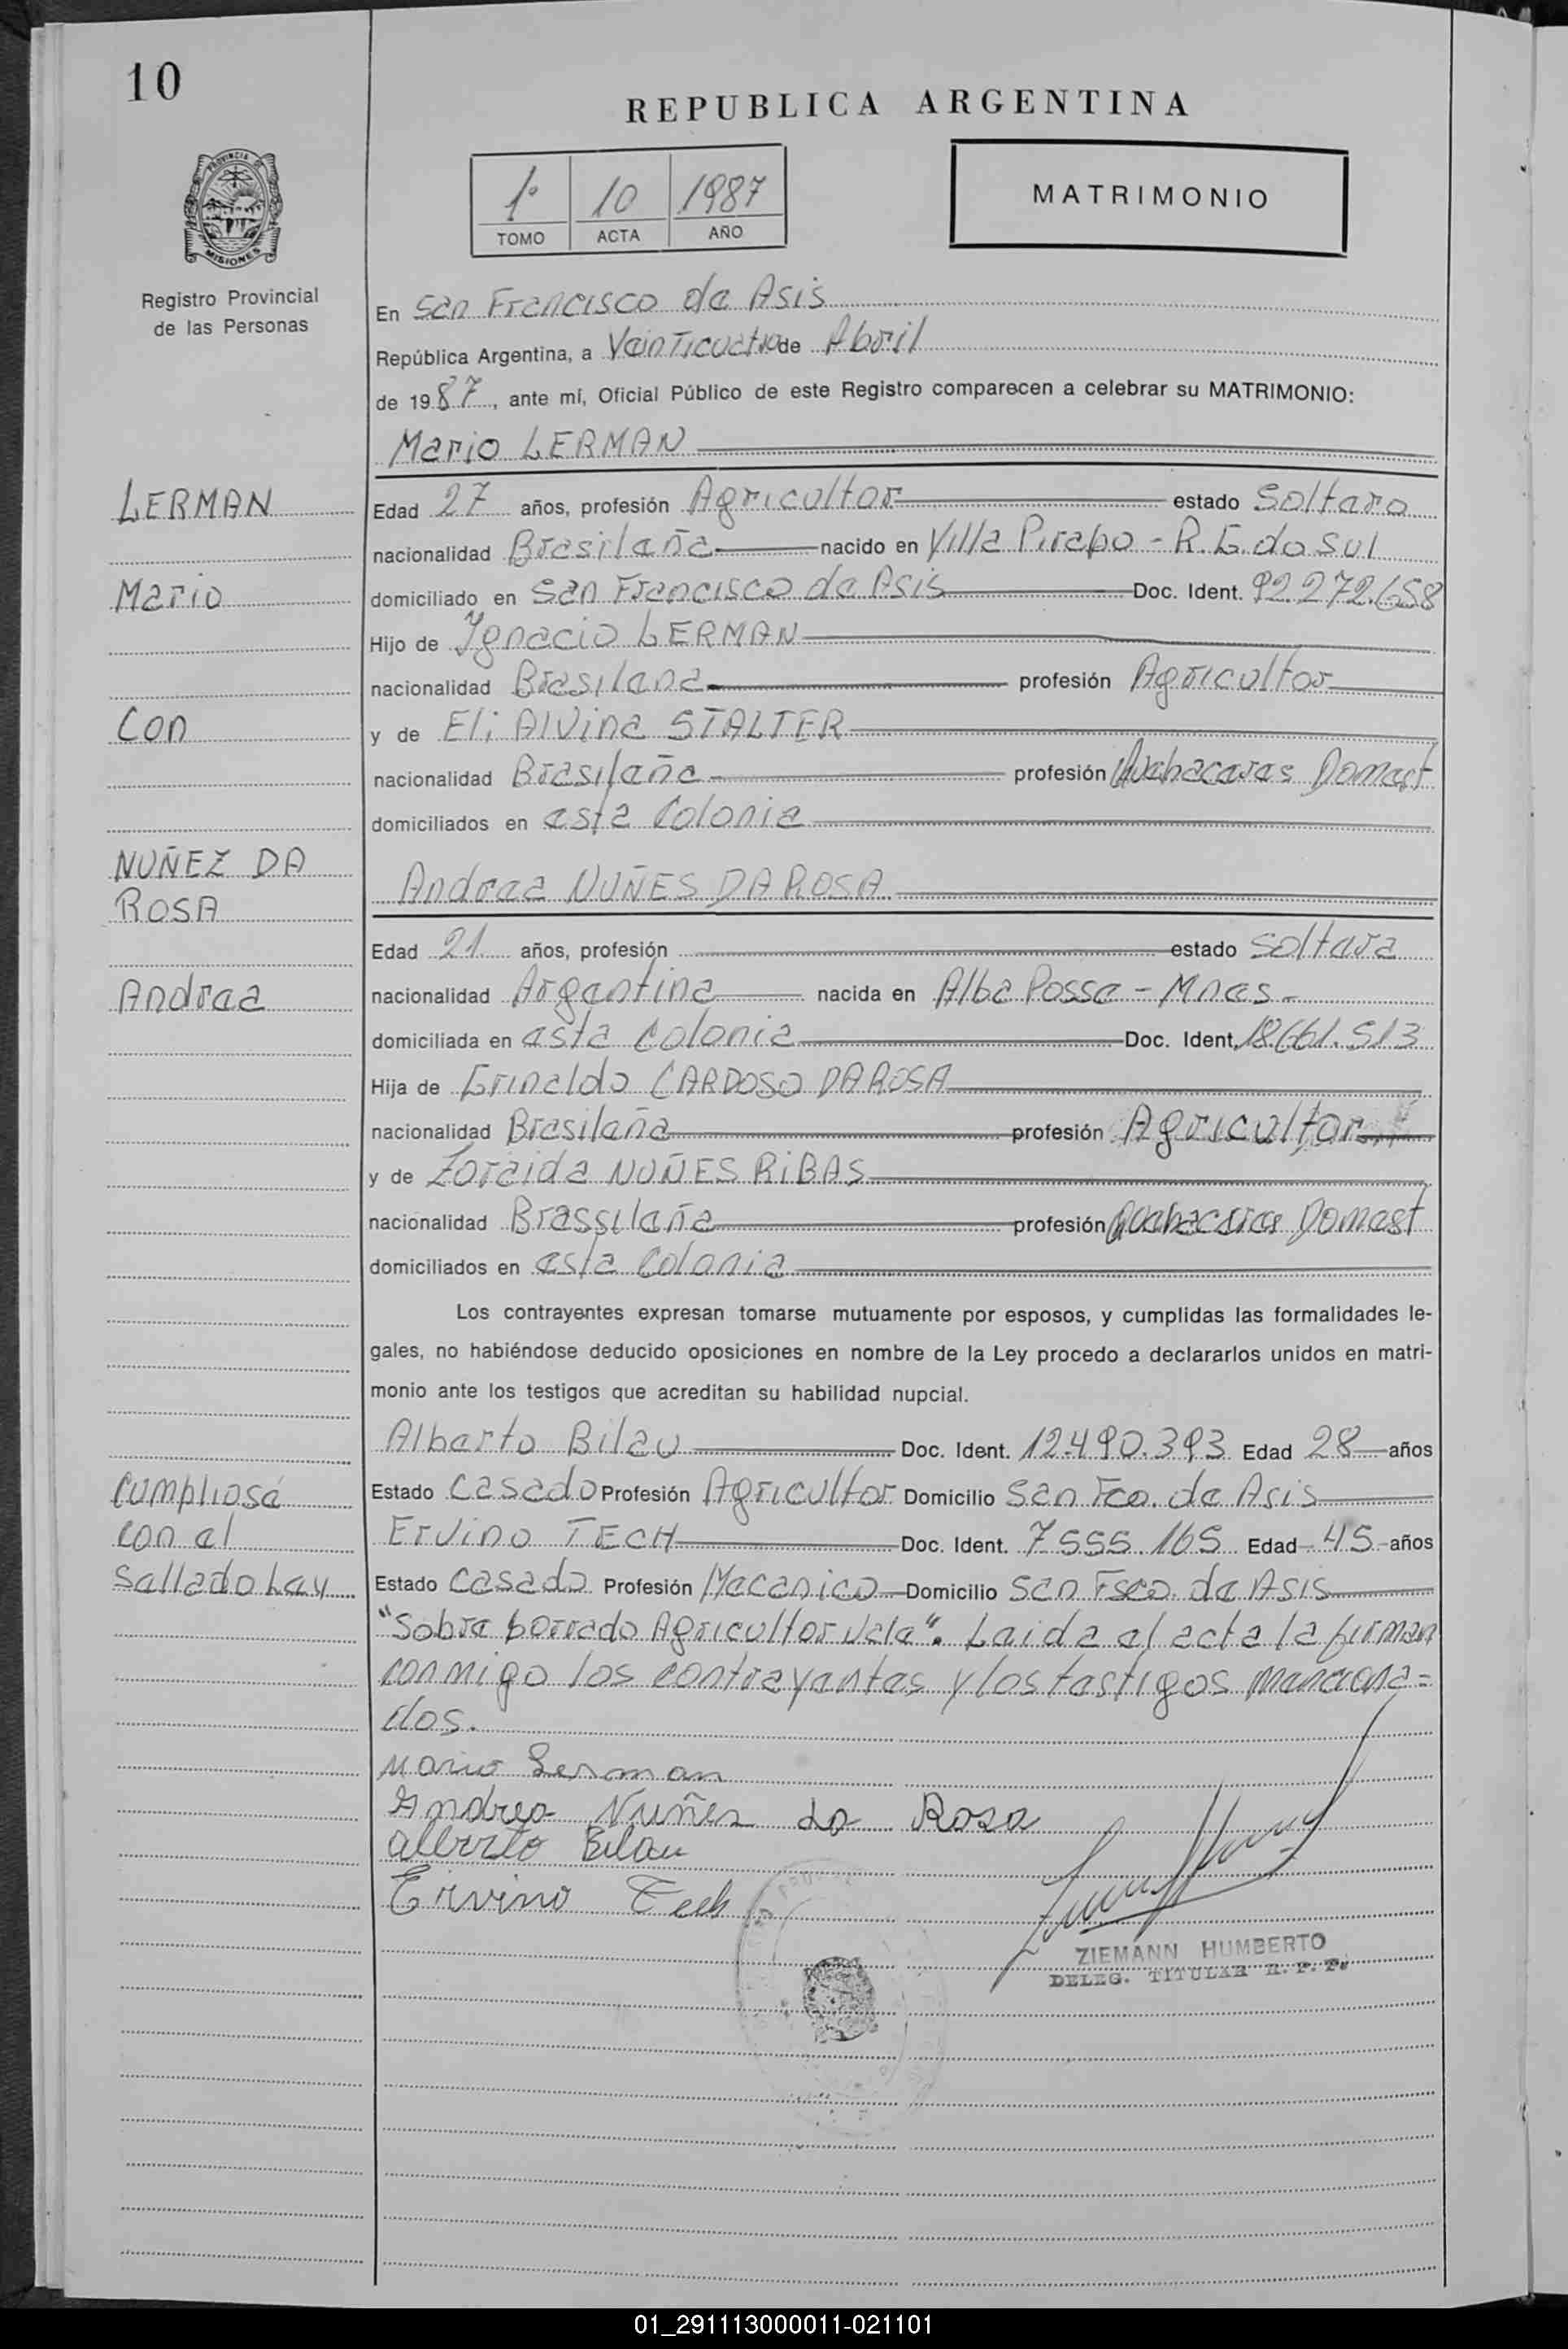 10
REPUBLICA ARGENTINA
1º 10 1987
TOMO ACTA AÑO
MATRIMONIO
PROVINCIA DE
MISIONES
Registro Provincial
de las Personas
En San Francisco de Asis
República Argentina, a Veinticuatro de Abril
de 1987, ante mí, Oficial Público de este Registro comparecen a celebrar su MATRIMONIO:
Mario LERMAN
LERMAN
Mario
Con
NUÑEZ DA
ROSA
Andrea
Edad 27 años, profesión Agricultor estado Soltero
nacionalidad Brasileña nacido en Villa Pirapo - R.G. do Sul
domiciliado en San Francisco de Asis Doc. Ident. 92.272.658
Hijo de Ignacio LERMAN
nacionalidad Brasilena profesión Agricultor
y de Eli Alvina STALTER
nacionalidad Brasileña profesión Domest
domiciliados en esta Colonia
Andrea NUÑES DA ROSA
Edad 21 años, profesión estado Soltera
nacionalidad Argentina nacida en Alba Posse - Mnes.
domiciliada en esta Colonia Doc. Ident. 18.661.513
Hija de Grinaldo CARDOSO DA ROSA
nacionalidad Brasileña profesión Agricultor
y de Zoraida NUÑES RIBAS
nacionalidad Brassileña profesión Domest
domiciliados en esta Colonia
Los contrayentes expresan tomarse mutuamente por esposos, y cumplidas las formalidades le-
gales, no habiéndose deducido oposiciones en nombre de la Ley procedo a declararlos unidos en matri-
monio ante los testigos que acreditan su habilidad nupcial.
Alberto Bilau Doc. Ident. 12.490.393 Edad 28 años
Estado Casado Profesión Agricultor Domicilio San Fco. de Asis
Ervino TECH Doc. Ident. 7555.165 Edad 45 años
Estado Casado Profesión Mecanico Domicilio San Fsco. de Asis
Cumpliose
con el
Sellado Ley
"Sobre borrado Agricultor Vale". Leida el acta la firman
conmigo los contrayentes y los testigos menciona=
dos.
Mario Lerman
Andrea Nuñes da Rosa
Alberto Bilau
Ervino Tech
ZIEMANN HUMBERTO
DELEG. TITULAR R. P. P.
01_291113000011-021101